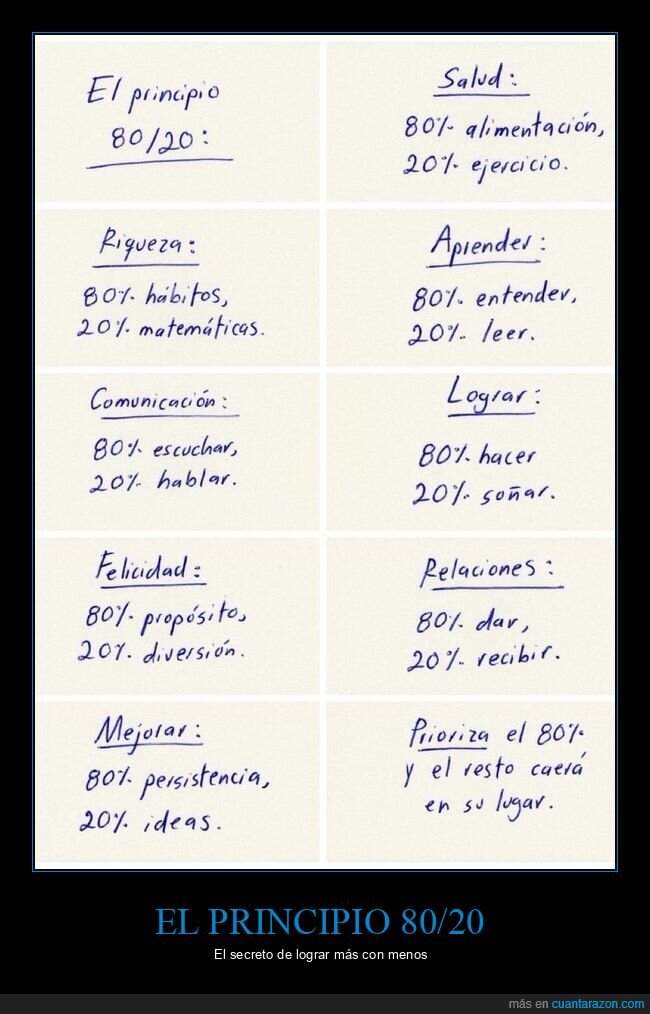 El principio
80/20:
Salud:
80% alimentación,
20% ejercicio.
Riqueza:
80% hábitos,
20% matemáticas.
Aprender:
80% entender,
20% leer.
Comunicación:
80% escuchar,
20% hablar.
Lograr:
80% hacer
20% soñar.
Felicidad:
80% propósito,
20% diversión.
Relaciones:
80% dar,
20% recibir.
Mejorar:
80% persistencia,
20% ideas.
Prioriza el 80%
y el resto caerá
en su lugar.
EL PRINCIPIO 80/20
El secreto de lograr más con menos
más en cuantarazon.com